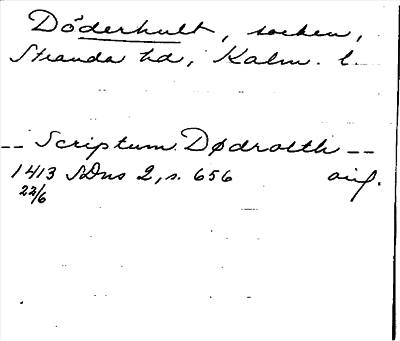 Döderhult, socken,
Stranda hd, Kalm. l.
-- Scriptum Dødrolth --
1413 SDns 2, s. 656 orig.
22/6